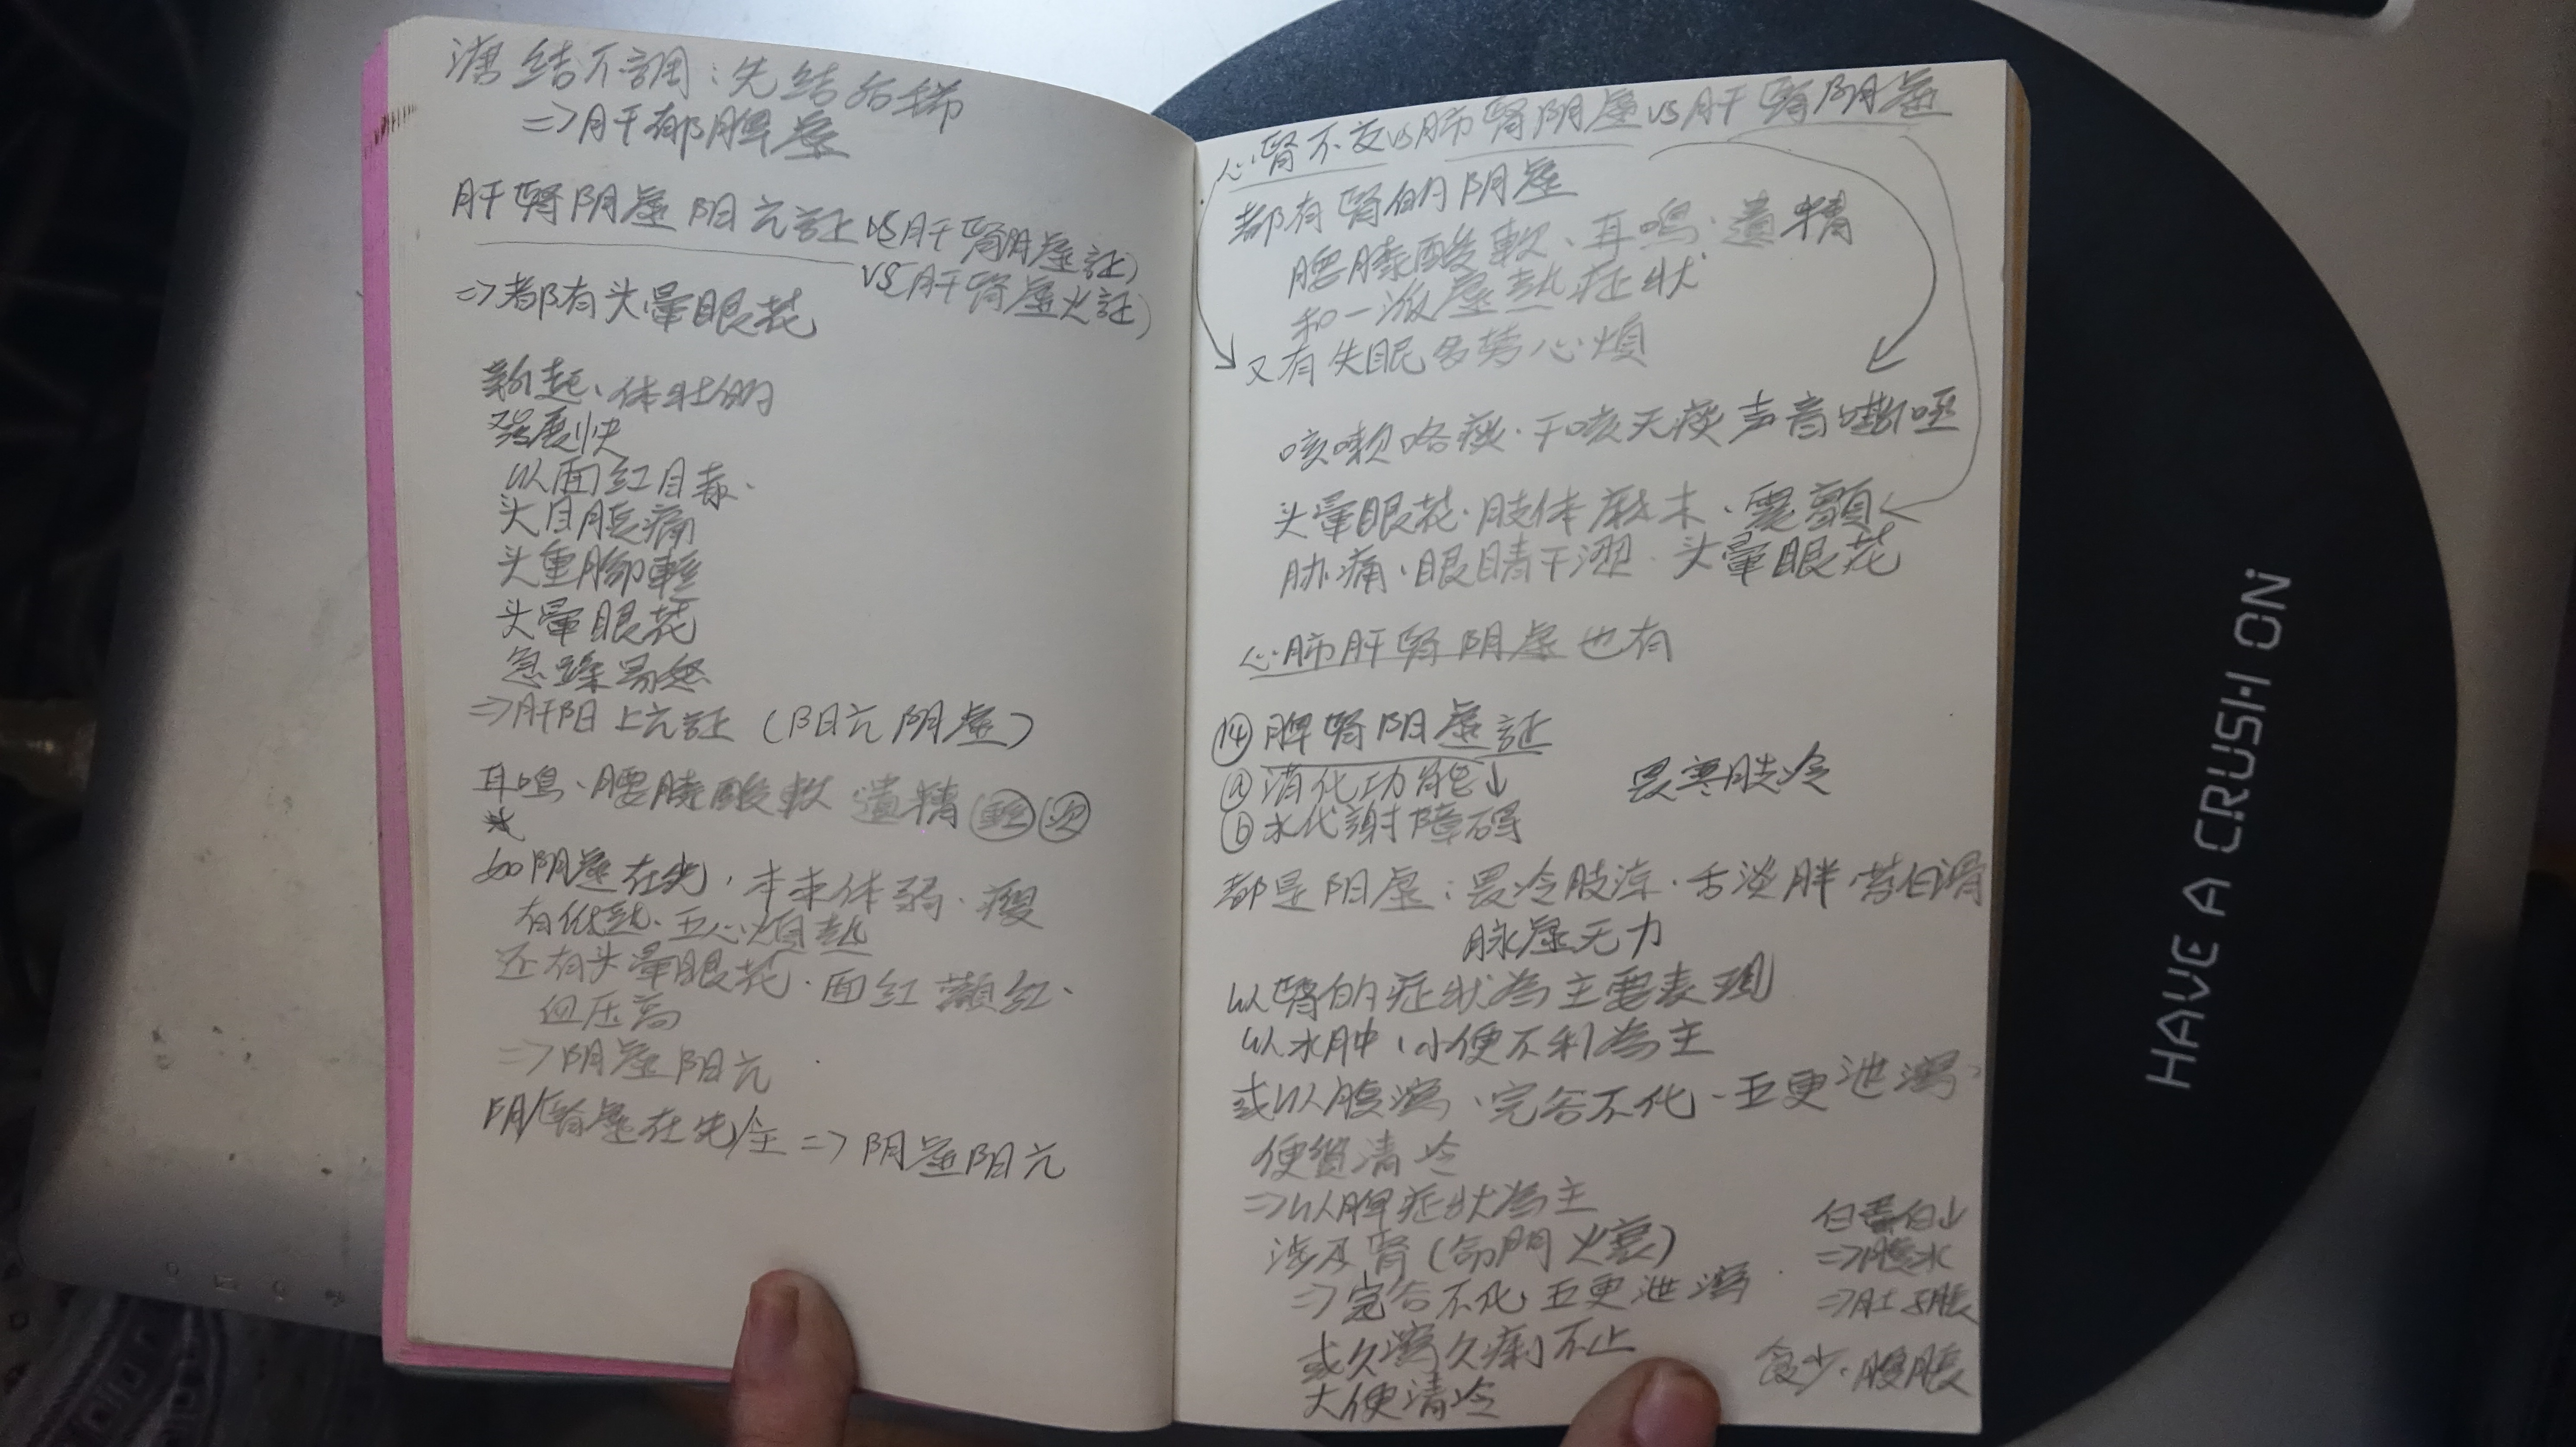 溏结不調：先结后稀
⇒肝郁脾虚
肝腎阴虚阳亢証 VS 肝腎阴虚証)
VS 肝腎虚火証)
⇒都有头暈眼花
新起、体壮的
発展快
以面红目赤、
头目胀痛
头重脚輕
头暈眼花
急躁易怒
⇒肝阳上亢証（阳亢阴虚）
耳鳴、腰膝酸軟 遺精 輕 次
如阴虚在先，本来体弱、瘦
有低热、五心煩热
还有头暈眼花、面红顴红、
血压高
⇒阴虚阳亢
阴/腎虚在先/主 ⇒ 阴虚阳亢
心腎不交 vs 肺腎阴虚 vs 肝腎阴虚
都有腎的阴虚
腰膝酸軟、耳鳴、遺精
和一派虚熱症状
又有失眠多夢心煩
咳嗽咯痰、干咳无痰声音嘶哑
头暈眼花、肢体麻木、震顫
胁痛、眼睛干澀、头暈眼花
心肺肝腎阴虚也有
⑭ 脾腎阳虚証
ⓐ 消化功能↓ 畏寒肢冷
ⓑ 水代謝障碍
都是阳虚：畏冷肢凉、舌淡胖、苔白滑
脉虚无力
以腎的症状為主要表現
以水肿、小便不利為主
或以腹瀉、完谷不化、五更泄瀉、
便質清冷
⇒以脾症状為主
涉及腎（命門火衰）
⇒完谷不化 五更泄瀉
或久瀉久痢不止
大便清冷
白蛋白↓
⇒腹水
⇒肚子胀
食少、腹胀
HAVE A CRUSH ON